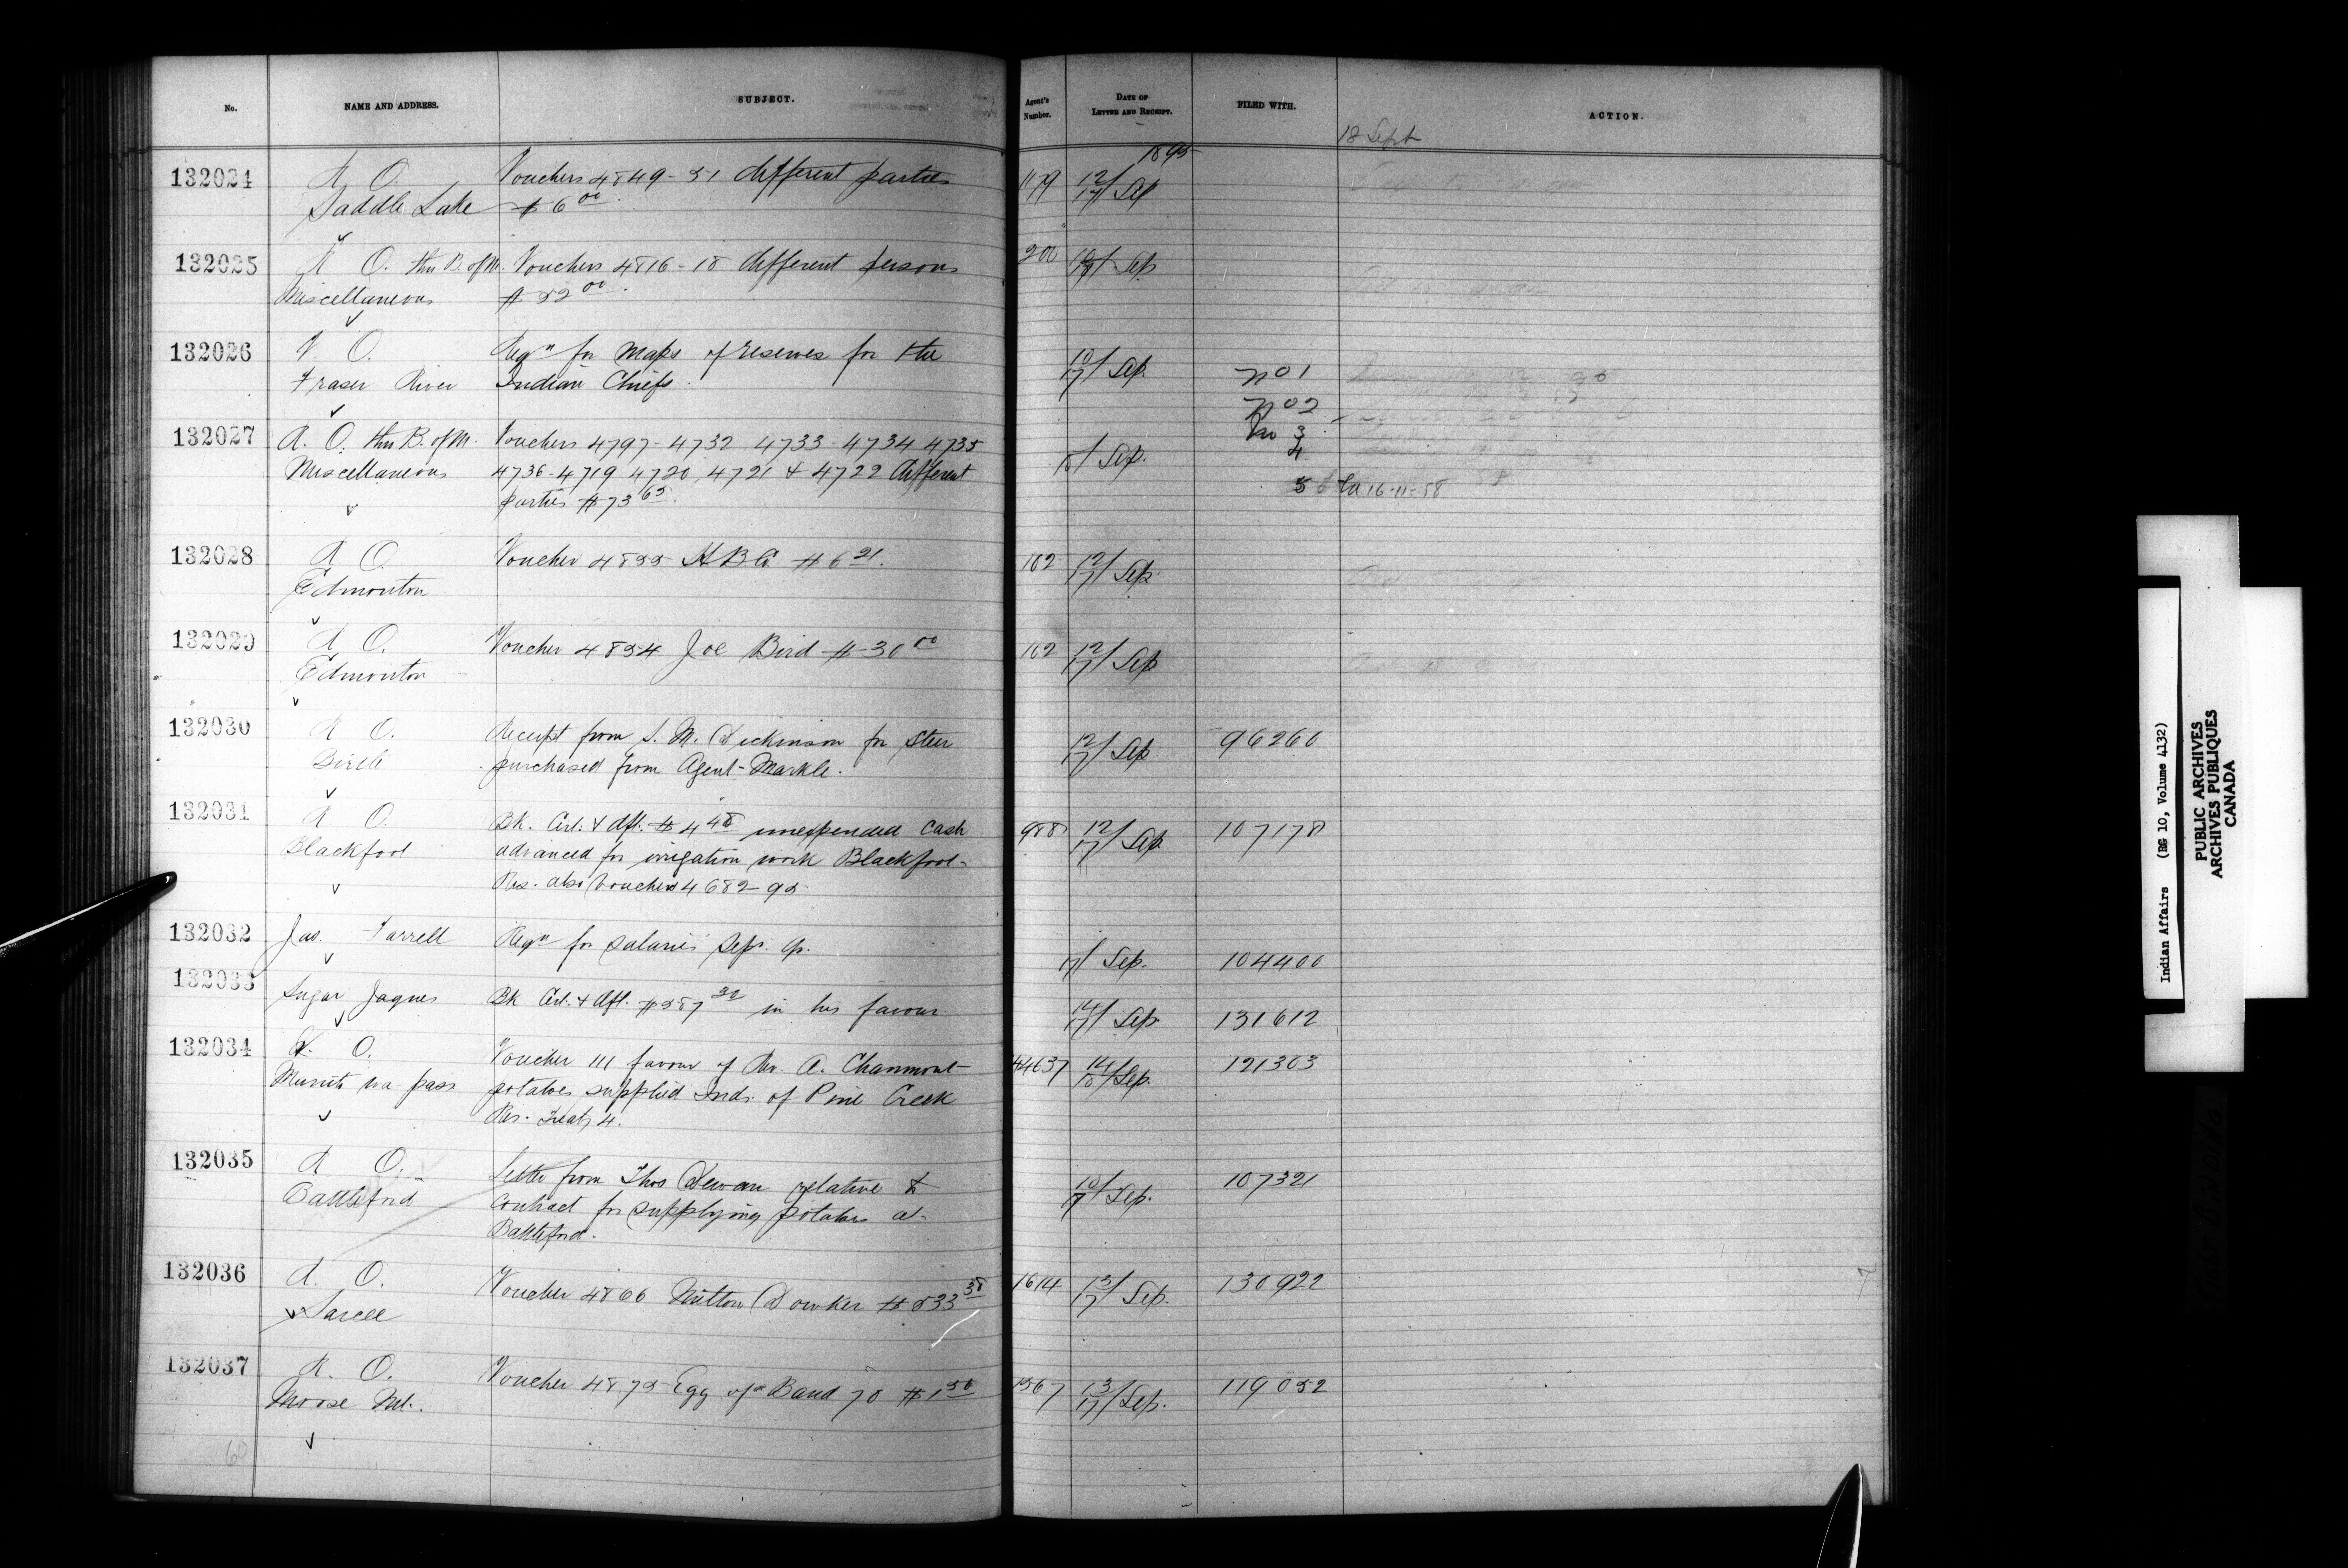 No. NAME AND ADDRESS. SUBJECT. Agent's Number. DATE OF LETTER AND RECEIPT. FILED WITH. ACTION.
18 Sept
1895
132024 A O. Vouchers 4849-51 different parties 179 12/17 Sep
Saddle Lake $6 00.
132025 A O. thru B. of M. Vouchers 4816-18 different persons 200 Sep
Miscellaneous $52 00.
132026 V. O. Reqn for Maps of reserves for the 10/17 Sep. No 1
Fraser River Indian Chiefs.
No 2
132027 A. O. thru B. of M. Vouchers 4797-4732 4733-4734 4735 Sep. No 3
Miscellaneous 4736-4719 4720, 4721 & 4722 different 4
parties $73 65. 5 16-11-58
132028 A O. Voucher 4855 H B Co $6 21. 102 12/17 Sep.
Edmonton
132029 A O. Voucher 4854 Joe Bird $30 00 102 12/17 Sep
Edmonton
132030 A O. Receipt from S. M. Dickinson for steer 12/17 Sep 96260
Birtle purchased from Agent Markle.
132031 A O. Bk. Cert. & dft. $4 48 unexpended cash 988 12/17 Sep 107178
Blackfoot advanced for irrigation work Blackfoot
Res. also vouchers 4682-95
132032 Jas. Farrell Reqn for salaries Sep. q. 17/ Sep. 104400
132033 Sugar Jaques Bk Cert. & dft. $587 32 in his favour 14/17 Sep. 131612
132034 O. Voucher 111 favour of A. Chaumont 44637 14/18 Sep. 121303
Muscowpetung pass potatoes supplied Inds. of Pine Creek
Res. Treaty 4.
132035 A O. Letter from Thos Dewan relative to 10/17 Sep. 107321
Battleford Contract for supplying potatoes at
Battleford.
132036 A. O. Voucher 4866 Milton Dowker $833 38 1614 13/17 Sep. 130922
Sarcee
132037 A. O. Voucher 4875 Egg of Band 70 $1 50 1567 13/17 Sep. 119052
Moose Mt.
60
Indian Affairs (RG 10, Volume 4132)
PUBLIC ARCHIVES
ARCHIVES PUBLIQUES
CANADA